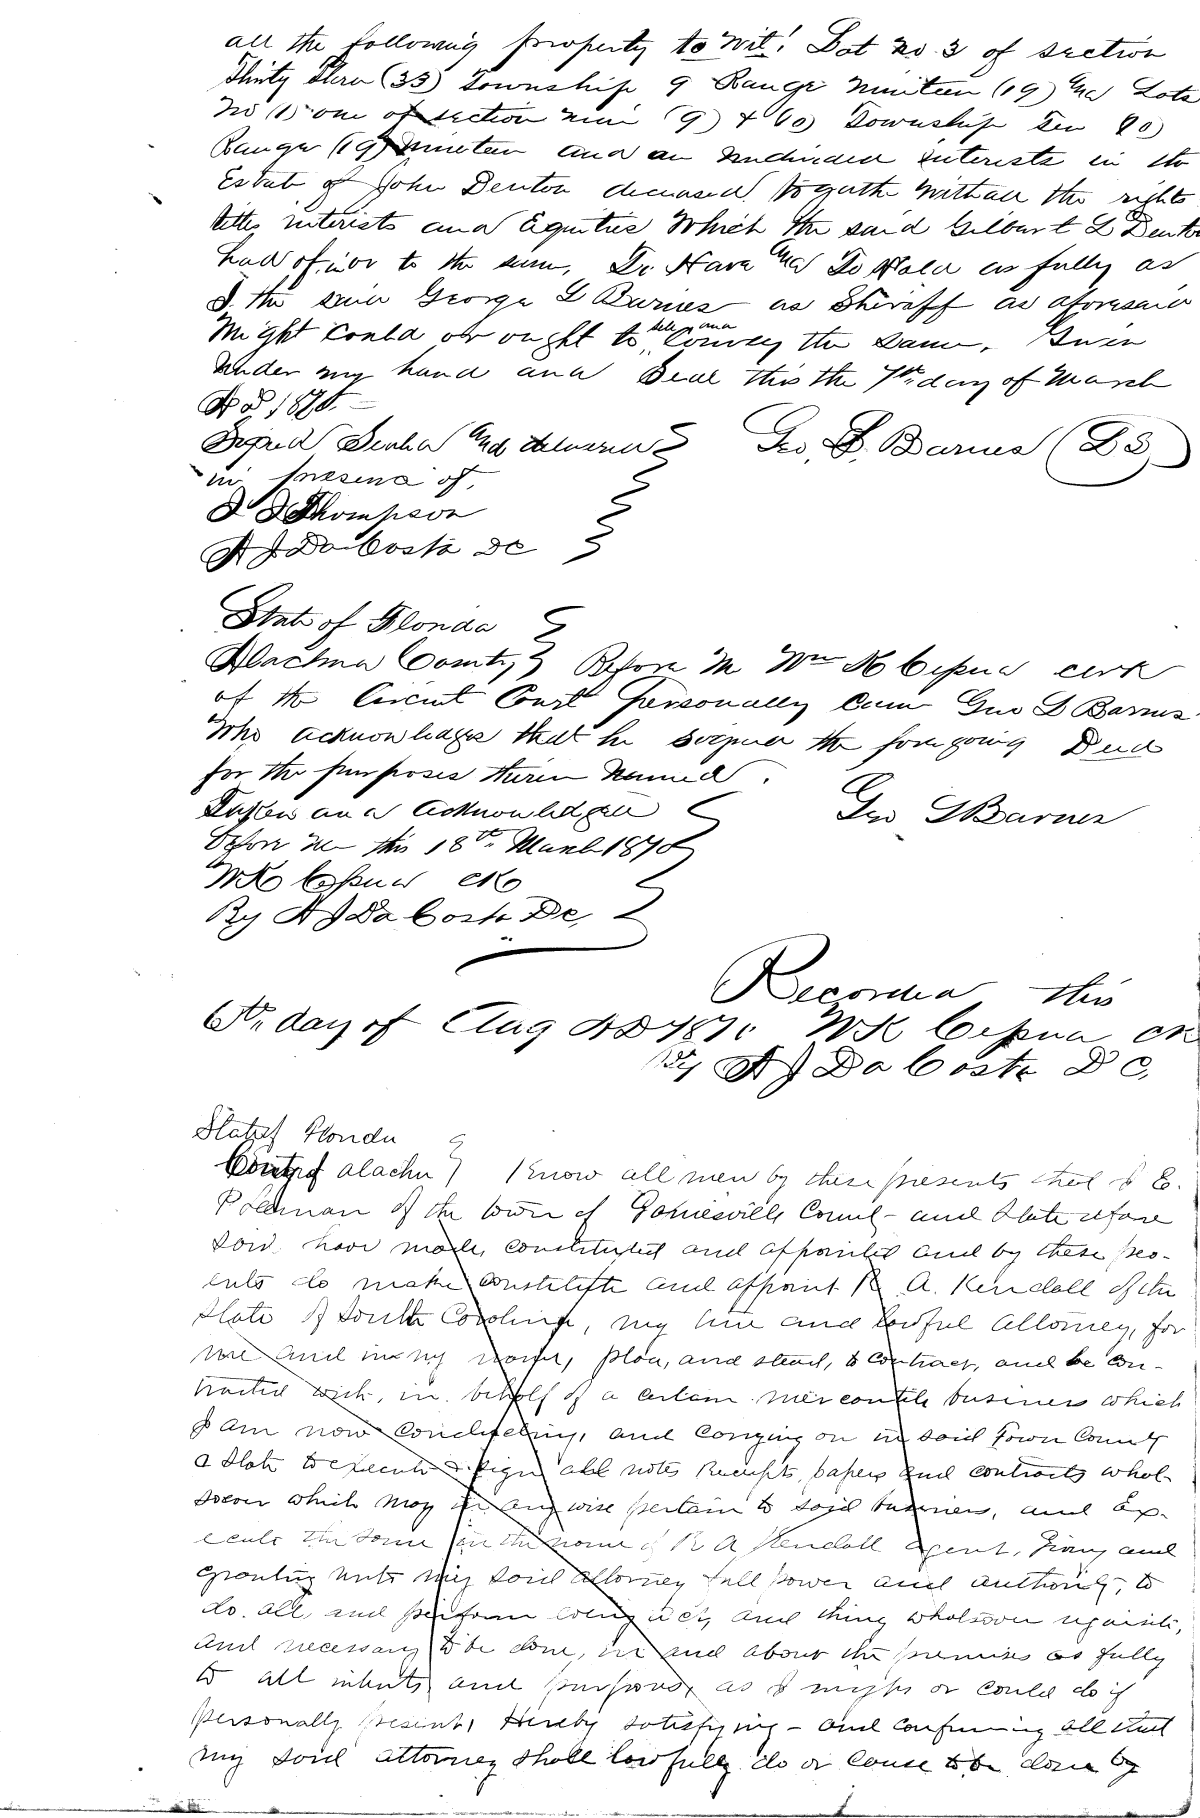 all the following property to wit! Lot No 3 of section
Thirty Three (33) Township 9 Range nineteen (19) And Lots
No (1) one of section nine (9) & (10) Township Ten (10)
Range (19) Nineteen and an undivided interests in the
Estate of John Denton deceased. togeather with all the rights
titles interests and Equities Which the said Gilbert L Denton
had of, in or to the same, To Have And To Hold as fully as
I, the said George L Barnes as Sheriff as aforesaid
Might Could or ought to sell and Convey the same. Given
under my hand and Seal this the 7th day of March
A D 1870.
Signed Sealed And delivered
in presence of.
Geo. L. Barnes (LS)
J J Thompson
A J Da Costa DC
State of Florida
Alachua County } Before Me Wm K Cessna clerk
of the Circuit Court personally Came Geo L Barnes
Who acknowledges that he signed the foregoing Deed
for the purposes therein Named.
Taken and acknowledged
Geo L Barnes
before me this 18th March 1870
WK Cessna clk
By A J Da Costa DC,
Recorded this
6th, day of Aug AD 1870 WK Cessna clk
By A J Da Costa D C,
State of Florida
County of Alachua } Know all men by these presents that I E.
of the town of Gainesville County and State afore
said have made, constituted and appointed and by these pre-
ents do make constitute and appoint R A. Kendall of the
State of South Carolina, my true and lawful Attorney, for
me and in my name, place, and stead, to contract, and be con-
tracted with, in behalf of a certain mercantile business which
I am now conducting, and carrying on in said Town County
& State to execute & sign all notes Receipts, papers and contracts what-
soever which may in any wise pertain to said business, and Ex-
ecute the same in the name of R A Kendall agent, Giving and
granting unto my said attorney full power and authority, to
do. all, and perform every act, and thing whatsoever requisite,
and necessary to be done, in and about the premises as fully
to all intents and purposes, as I might or could do if
personally present, Hereby satisfying - and confirming all that
my said attorney shall lawfully do or cause to be done by